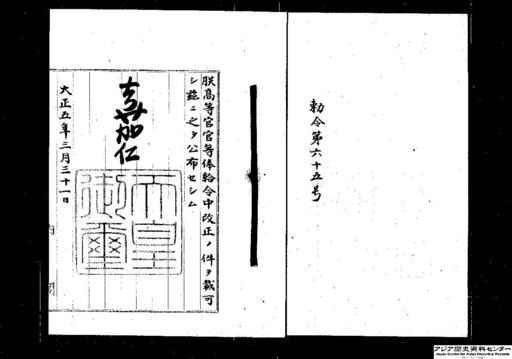 勅令第六十五号
朕高等官官等俸給令中改正ノ件ヲ裁可
シ茲ニ之ヲ公布セシム
嘉仁
天皇御璽
大正五年三月三十一日
内閣
アジア歴史資料センター
Japan Center for Asian Historical Records